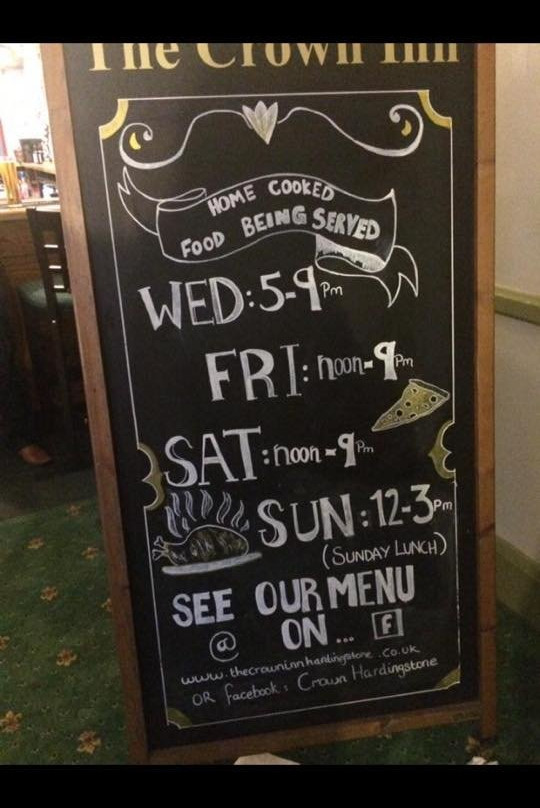 The Crown Inn
HOME COOKED
FOOD BEING SERVED
WED: 5-9pm
FRI: noon-9pm
SAT: noon-9pm
SUN: 12-3pm
(SUNDAY LUNCH)
SEE OUR MENU
@ ON... f
www.thecrowninnhardingstone.co.uk
OR facebook: Crown Hardingstone